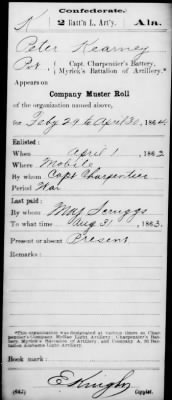 Confederate.
K 2 Batt'n L. Art'y. Ala.
Peter Kearney
Pvt, Capt. Charpentier's Battery,
Myrick's Battalion of Artillery.*
Appears on
Company Muster Roll
of the organization named above,
for Feby 29 to April 30, 1864.
Enlisted:
When April 1, 1862
Where Mobile
By whom Capt Charpentier
Period War
Last paid:
By whom Maj Scruggs
To what time Aug 31, 1863.
Present or absent Present
Remarks:
*This organization was designated at various times as Charpentier's Company
Myrick's Battalion of Artillery, and Company A,
Alabama Light Artillery.
Book mark:
(642) Copyist.